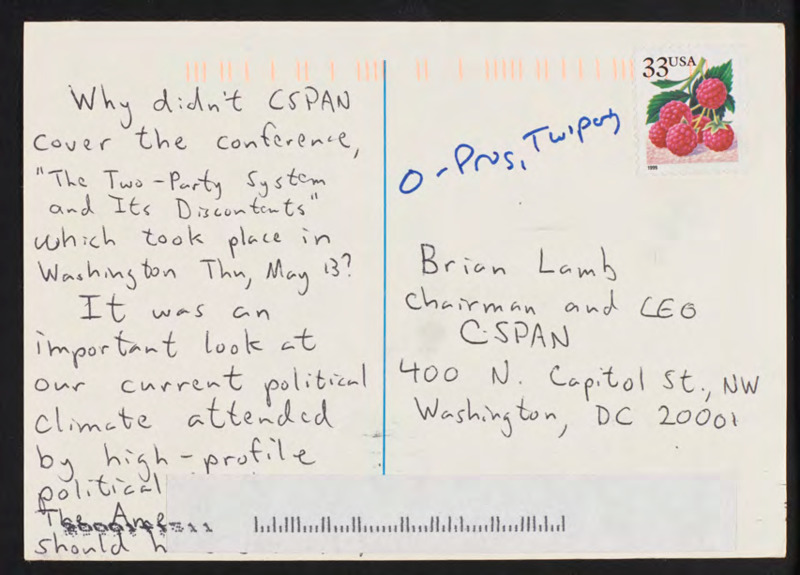 Why didn't CSPAN
cover the conference,
"The Two-Party System
and Its Discontents"
which took place in
Washington Thu, May 13?
It was an
important look at
our current political
climate attended
by high-profile
political
The Ame
should h
33USA
1999
Brian Lamb
Chairman and CEO
C-SPAN
400 N. Capitol St., NW
Washington, DC 20001